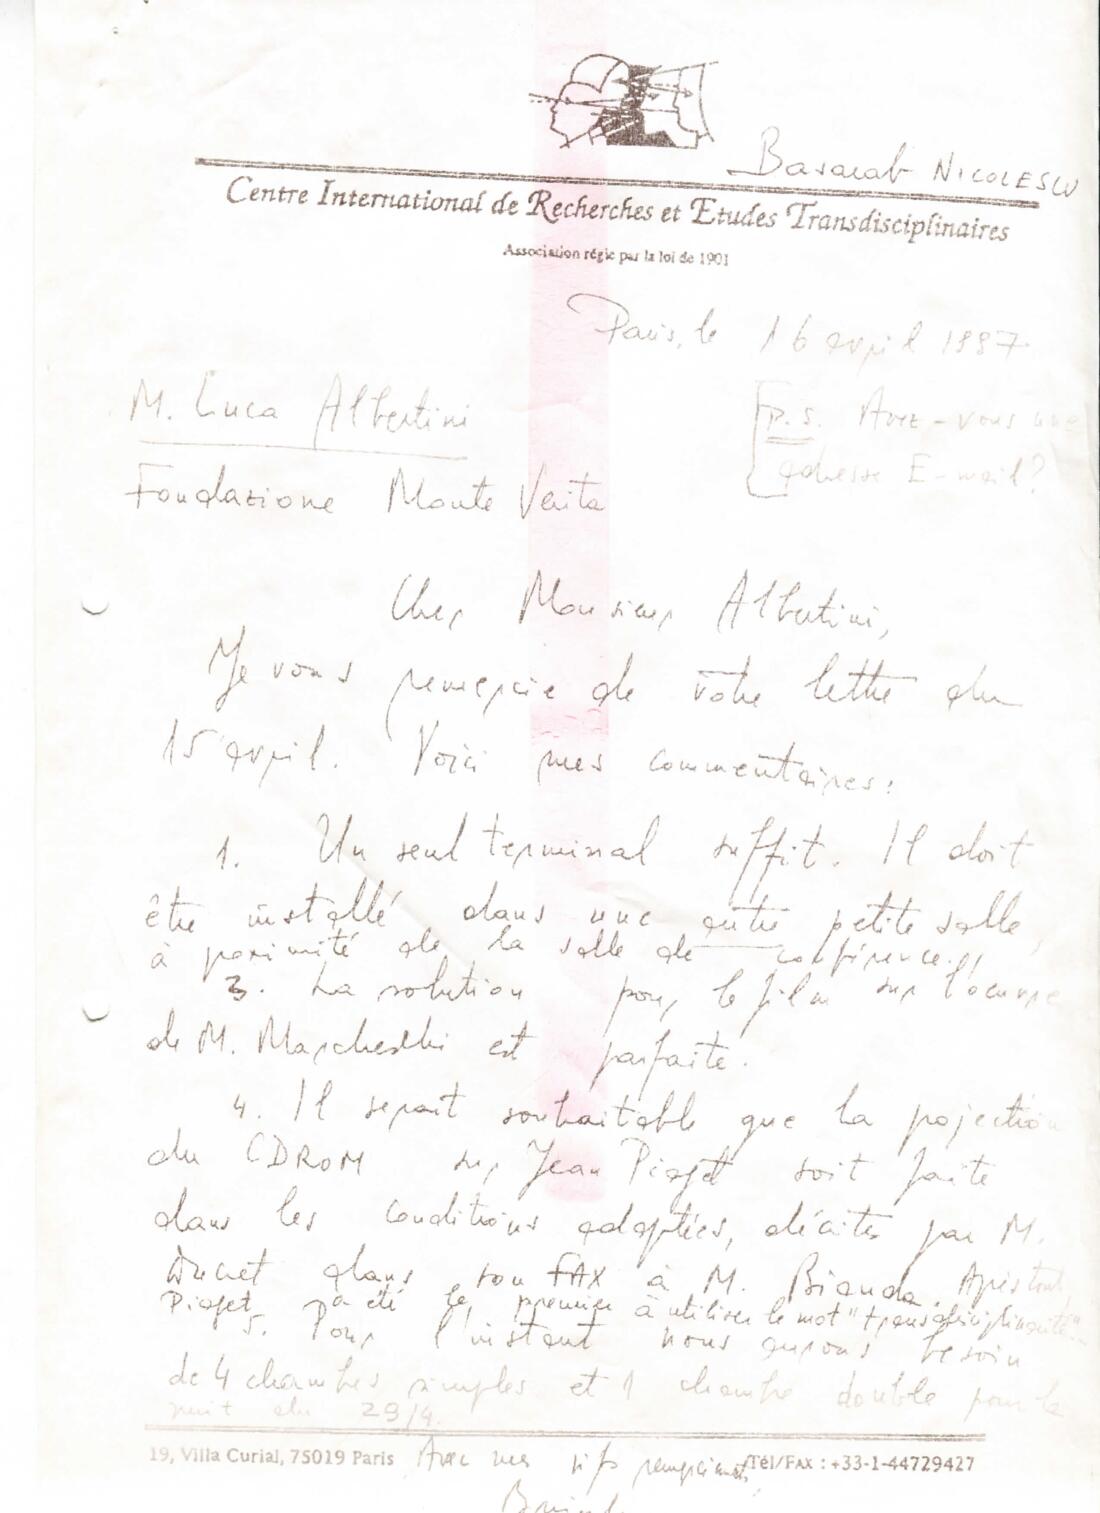 Basarab NICOLESCU
Centre International de Recherches et Etudes Transdisciplinaires
Association régie par la loi de 1901
Paris, le 16 avril 1997
M. Luca Albertini
[p.s. Avez-vous une
adresse E-mail?
Fondazione Monte Verita
Cher Monsieur Albertini,
Je vous remercie de votre lettre du
15 avril. Voici mes commentaires:
1. Un seul terminal suffit. Il doit
être installé dans une autre petite salle,
à proximité de la salle de conférence.
3. La solution pour le film sur l'oeuvre
de M. Marcheschi est parfaite.
4. Il serait souhaitable que la projection
du CDROM sur Jean Piaget soit faite
dans les conditions adaptées, décrites par M.
Ducret dans son FAX à M. Bianda. Après tout,
Piaget a été le premier à utiliser le mot "transdisciplinarité".
5. Pour l'instant nous aurons besoin
de 4 chambres simples et 1 chambre double pour la
nuit du 29/4.
19, Villa Curial, 75019 Paris
Avec mes remerciements,
Tél/FAX : +33-1-44729427